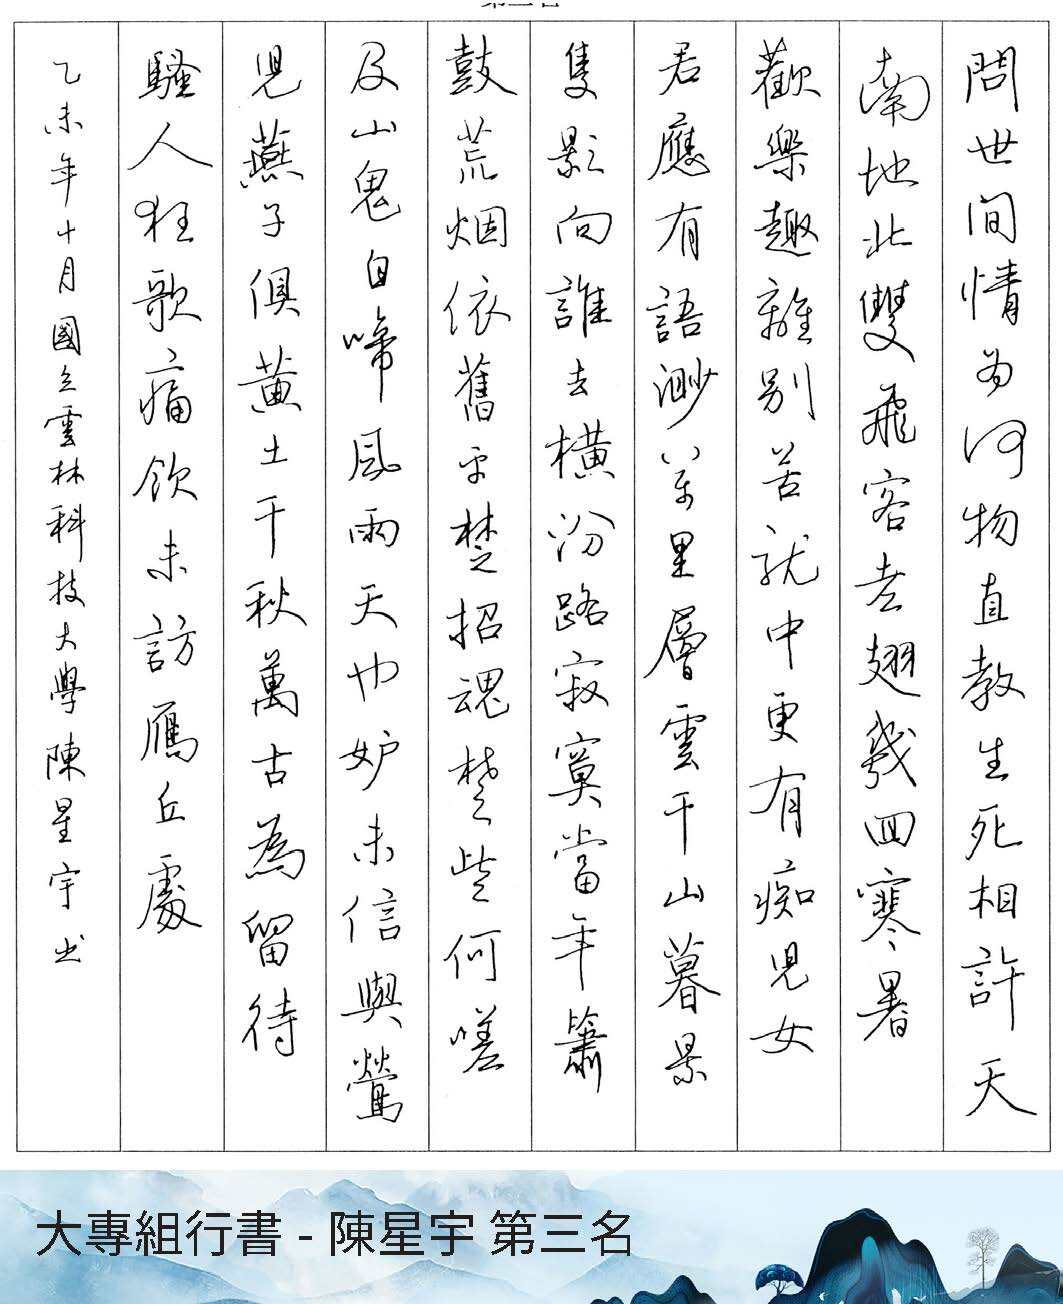 問世間情為何物直教生死相許天
南地北雙飛客老翅幾回寒暑
歡樂趣離別苦就中更有痴児女
君應有語渺萬里層雲千山暮景
隻影向誰去橫汾路寂寞當年簫
鼓荒烟依舊平楚招魂楚些何嗟
及山鬼自啼風雨天也妒未信與鶯
児燕子俱黃土千秋萬古為留待
騷人狂歌痛飲未訪雁丘處
乙未年十月國立雲林科技大學陳星宇书
大專組行書 - 陳星宇 第三名